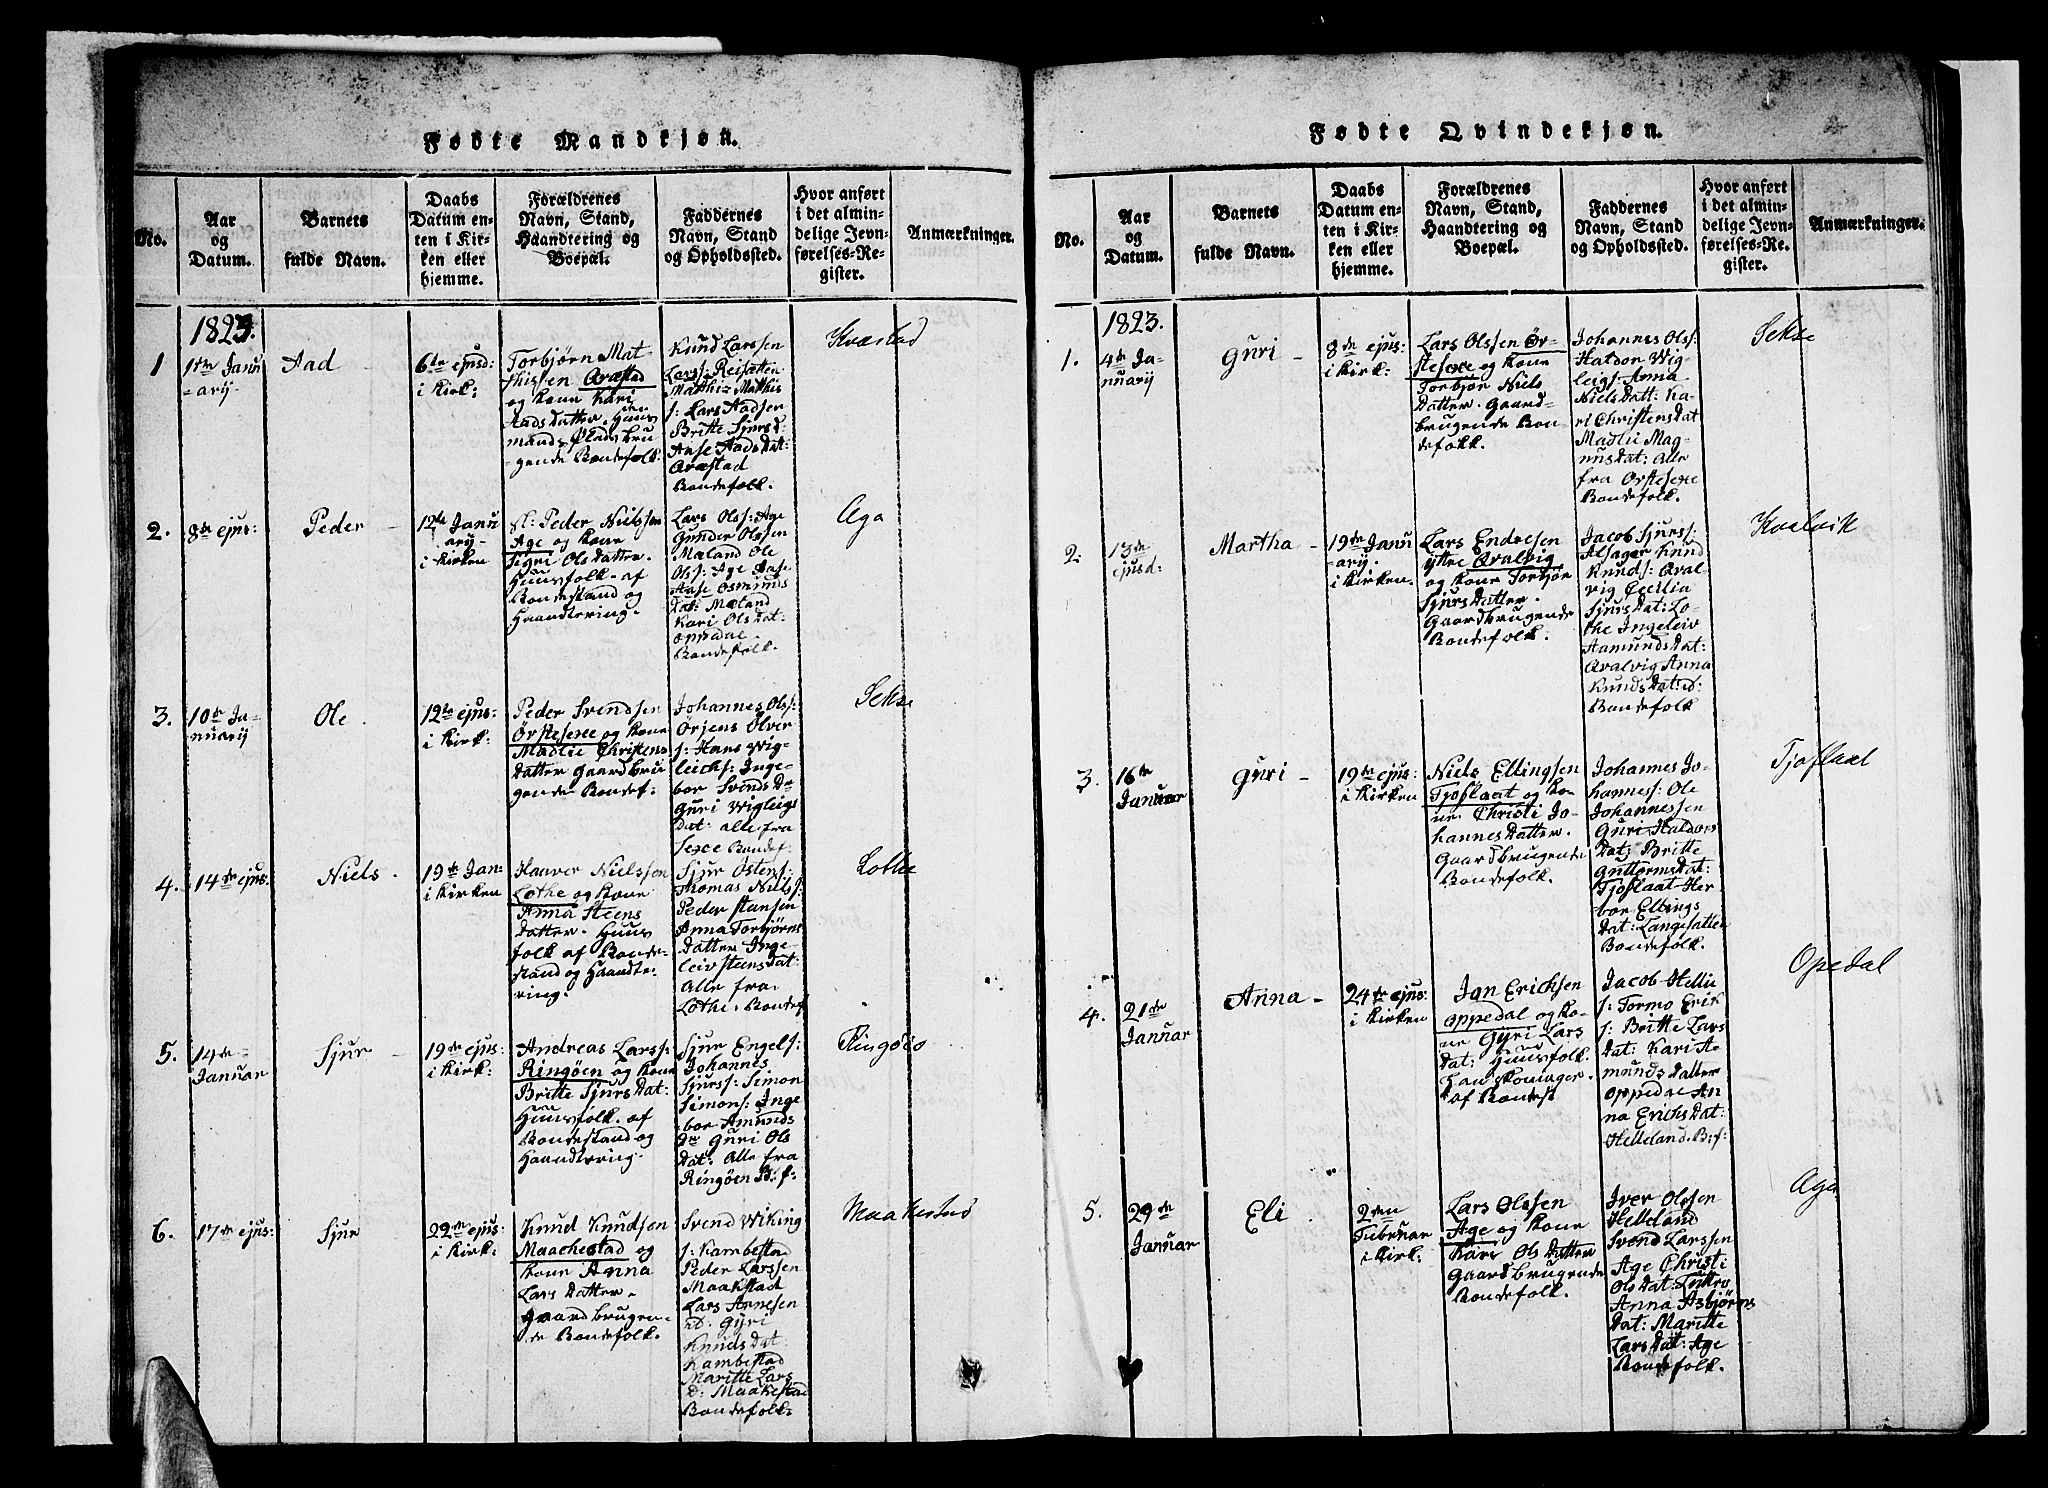 Fødte Mandkjøn.
No.
Aar
og
Datum.
Barnets
fulde Navn.
Daabs
Datum en-
ten i Kir-
ken eller
hjemme.
Forældrenes
Navn, Stand,
Haandtering og
Boepæl.
Faddernes
Navn, Stand
og Opholdssted.
Hvor anført
i det almin-
delige Jevn-
førelses-Re-
gister.
Anmærkninger.
1823.
1
1ste Janu
-ary-
Aad
6te ejusd:
i Kirk:
Torbjørn Mat-
thissen Qvæstad
og kone Kari
Aads Datter. Huus
mands Plads bru
-gende Bondefolk.
Knud Larssen
Reisæten
Matthiz Mathis
s: Lars Aadsen
Britte Sjursd:
Anse Aads Dat:
Qvæstad
Bondefolk.
Kvæstad
2.
8de ejus:
Peder -
12te Janu
ary-
i Kirken
sl: Peder Nielssen
Age og kone
Sigri Ols Datter.
Huusfolk. af
Bondestand og
Haandtering.
Lars Olss: Age
Gunder Olssen
Mæland Ole
Olss: Age Anse
Osmunds
Dat: Mæland
Kari Ols Dat:
Oppedal.
Bondefolk.
Aga
3.
10de Ja-
nuarij
Ole.
12te ejus:
i Kirk:
Peder Svendsen
Ørstesexe og kone
Madlie Christens
Datter Gaardbru
gende Bondef:
Johannes Olss:
Ørjens Ølver
s: Hans Wig-
leichs: Inge-
bor Svends Dr
Guri Wigleigs
dat: alle fra
Sexe Bondef:
Sekse
4.
14de ejus.
Niels.
19de Jan:
i Kirken
Haaver Nielssen
Lothe og kone
Anna Steens
Datter. Huus
folk af Bonde-
stand og Haandte-
ring.
Sjur Østens:
Thomas Niels:
Peder Stansen
Anna Torbjørns
Datter Inge-
leiv Steens Dat:
Alle fra
Lothe. Bondef:
Lothe
5.
14de
Januar
Sjur -
19de ejus:
i Kirk:
Andreas Larss:
Ringøen og kone
Britte Sjurs Dat:
Huusfolk. af
Bondestand og
Haandtering.
Sjur Engels:
Johannes
Sjurss: Simon
Simons: Inge
bor Amunds
Dr Guri Ols
Dat: Alle fra
Ringøen B: f:
Ringøio
6.
17de ejus:
Sjur
22de ejus:
i Kirk:
Knud Knudsen
Maachestad og
kone Anna
Lars Datter.
Gaardbrugen-
de Bondefolk.
Svend Wiking
s: Kambesta
Peder Larssen
Maakstad
Lars Arnesen
id. Gyri
Knuds Dat:
Kambestad
Maritte Lars
D: Maakestad
Bondefolk:
Maakestad
Fødte Qvindekjøn.
No.
Aar
og
Datum.
Barnets
fulde Navn.
Daabs
Datum en-
ten i Kir-
ken eller
hjemme.
Forældrenes
Navn, Stand,
Haandtering og
Boepæl.
Faddernes
Navn, Stand
og Opholdssted.
Hvor anført
i det almin-
delige Jevn-
førelses-Re-
gister.
Anmærkninger.
1823.
1.
4de Ja-
nuarij
Guri -
8de ejus:
i Kirk:
Lars Olssen Ør-
stesexe og kone
Torbjør Niels
Datter. Gaard-
brugende Bon-
defolk.
Johannes Olss:
Hatson Wig
leigs: Anna
Niels Datt: Ka-
ri Christens Dat
Madlii Mag-
nus dat: Alle
fra Ørstesexe
Bondefolk.
Sekse
2.
13de
ejusd:
Martha -
19de Janu
ary.
i Kirken.
Lars Endresen
ytre Qvalvig
og kone Torbjør
Sjurs Datter.
Gaardbrugende
Bondefolk.
Jacob Sjurss:
Alsager Knud
Knuds: Qval-
vig Cecilia
Sjurs Dat: Lo-
the Ingeleiv
Aamunds Dat:
Qvalvig Anna
Knuds Dat: id:
Bondefolk
Kvalvik
3.
16de
Januar
Guri -
19de ejus:
i Kirken
Niels Ellingsen
Tjoflaat og ko-
ne Christi Jo-
hannes Datter.
Gaardbrugende
Bondefolk.
Johannes Jo-
hanness: Ole
Johannessen
Guri Haldors
Dat: Britte
Guttorms Dat:
Tjoflaat Her-
bor Ellings
Dat: Langesatter
Bondefolk.
Tjoflaat
4.
21de
Januar
Anna -
24de ejus:
i Kirken
Jan Erichsen
Oppedal og ko-
ne Gyri Lars
Dat: Huusfolk.
af Bondest
Jacob Helli
s: Tormo Erik
s: Britte Lars
Dat: Kari A-
munds Datter
Oppedal An
na Erichs Dat:
Helleland. B: f:
Opedal
5.
29de
Januar
Eli.
2den
Februar
i Kirk:
Lars Olssen
Age og kone
Kari Ols Datter
Gaardbrugende
Bondefolk.
Iver Olssen
Helleland
Svend Larssen
Age Christi
Ols Dat: Luttro
Anna Asbjørns
Dat: Maritte
Lars Dat: Age
Bondefolk.
Aga